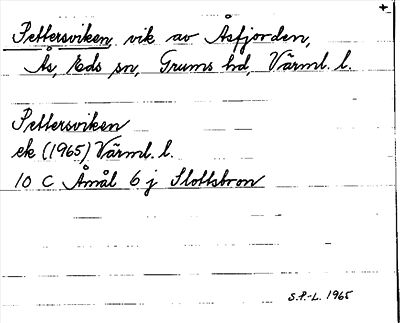 +
Pettersviken, vik av Åsfjorden,
Ås, Eds sn, Grums hd, Värml. l.
Pettersviken
ek (1965) Värml. l.
10 C Åmål 6 j Slottsbron
S.P.-L. 1965